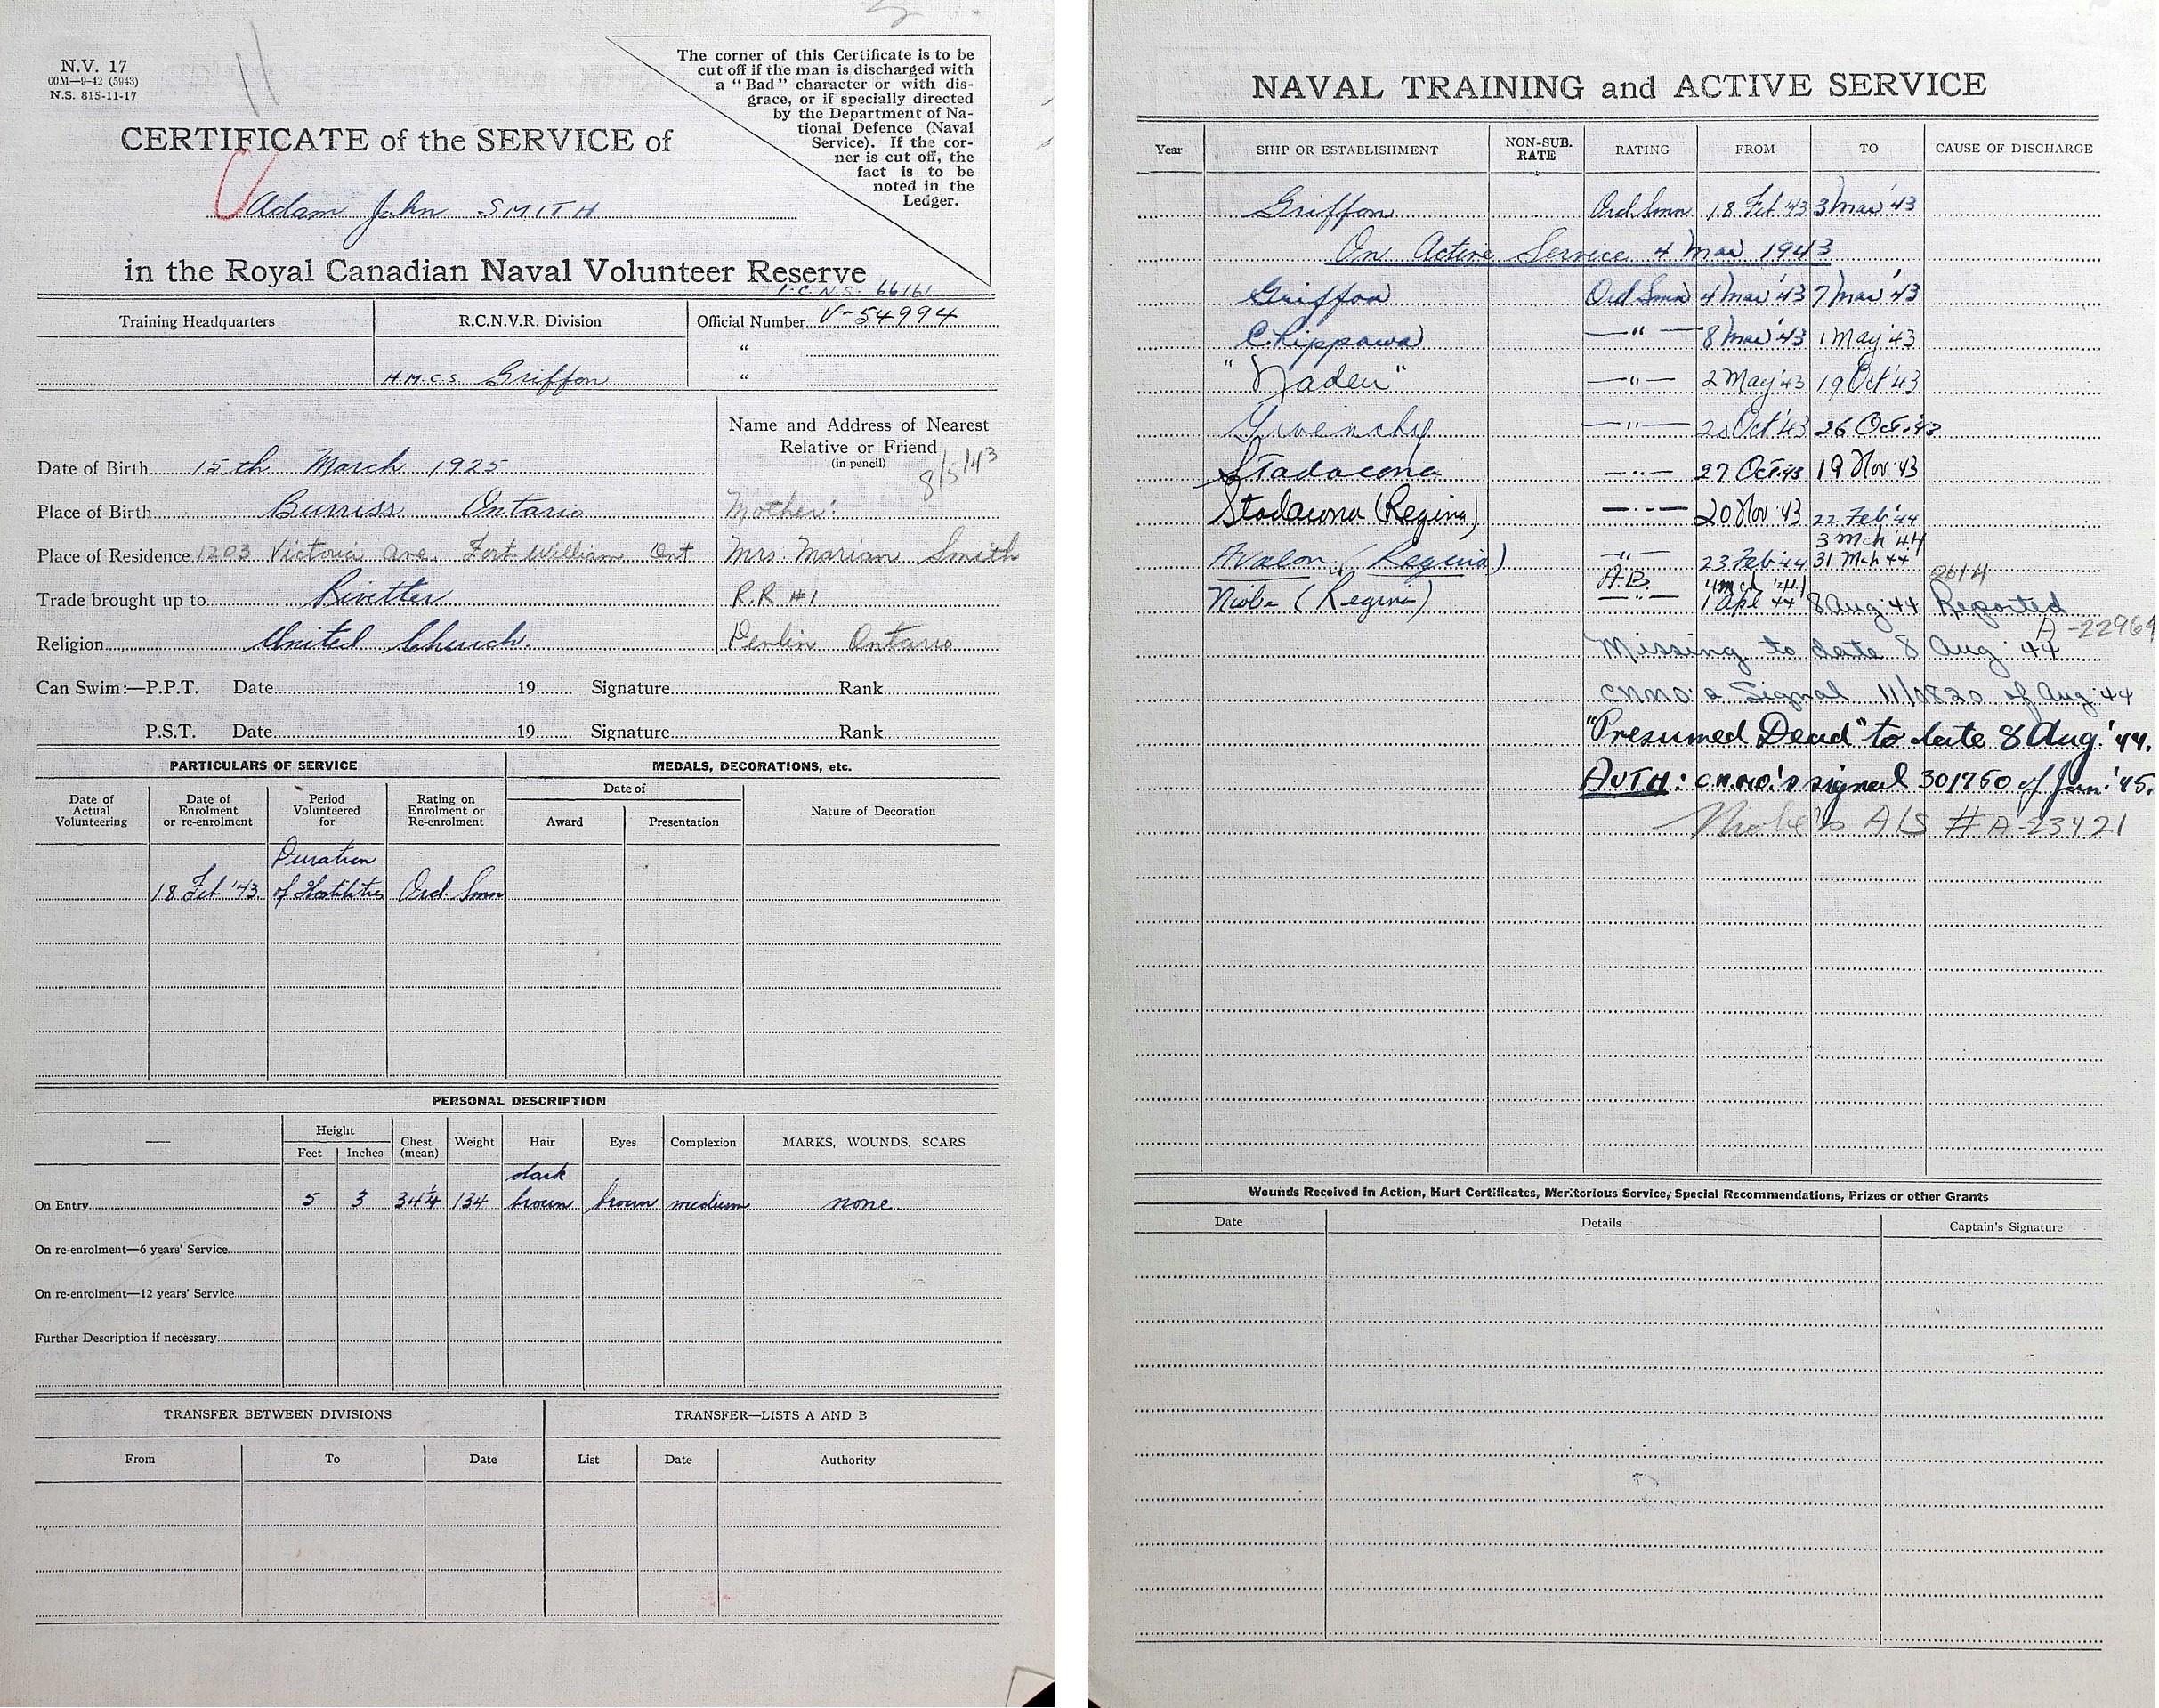 N.V. 17
60M—9-42 (5943)
N.S. 815-11-17
The corner of this Certificate is to be
cut off if the man is discharged with
a "Bad" character or with dis-
grace, or if specially directed
by the Department of Na-
tional Defence (Naval
Service). If the cor-
ner is cut off, the
fact is to be
noted in the
Ledger.
CERTIFICATE of the SERVICE of
Adam John SMITH
in the Royal Canadian Naval Volunteer Reserve
I.C.N.S. 66161
Training Headquarters R.C.N.V.R. Division Official Number V-54994
"
H.M.C.S. Griffon "
Name and Address of Nearest
Relative or Friend
(in pencil)
8/5/43
Date of Birth 15th March 1925
Place of Birth Burriss Ontario Mother:
Place of Residence 1203 Victoria Ave. Fort William Ont Mrs. Marian Smith
Trade brought up to Rivetter R.R #1
Religion United Church. Devlin Ontario
Can Swim:—P.P.T. Date 19 Signature Rank
P.S.T. Date 19 Signature Rank
PARTICULARS OF SERVICE MEDALS, DECORATIONS, etc.
Date of Actual Volunteering Date of Enrolment or re-enrolment Period Volunteered for Rating on Enrolment or Re-enrolment Date of Award Presentation Nature of Decoration
18 Feb '43. Duration of Hostilities Ord. Smn
PERSONAL DESCRIPTION
— Height Feet Inches Chest (mean) Weight Hair Eyes Complexion MARKS, WOUNDS, SCARS
On Entry 5 3 34¼ 134 dark brown brown medium none
On re-enrolment—6 years' Service
On re-enrolment—12 years' Service
Further Description if necessary
TRANSFER BETWEEN DIVISIONS TRANSFER—LISTS A AND B
From To Date List Date Authority
NAVAL TRAINING and ACTIVE SERVICE
Year SHIP OR ESTABLISHMENT NON-SUB. RATE RATING FROM TO CAUSE OF DISCHARGE
Griffon Ord Smn 18 Feb '43 3 Mar '43
On Active Service 4 Mar 1943
Griffon Ord Smn 4 Mar '43 7 Mar '43
Chippawa —"— 8 Mar '43 1 May '43
"Naden" —"— 2 May '43 19 Oct '43
Givenchy —"— 20 Oct '43 26 Oct. '43
Stadacona —"— 27 Oct. 43 19 Nov '43
Stadacona (Regina) —"— 20 Nov '43 22 Feb '44
3 Mch 44
Avalon (Regina) —"— 23 Feb '44 31 Mch 44
A.B. 4 Mch '44
Niobe (Regina) —"— 1 Apl 44 8 Aug '44 Reported
A-22964
Missing to date 8 Aug 44
CNMO's Signal 11/1820 of Aug. 44
"Presumed Dead" to date 8 Aug. '44.
AUTH: C.N.MO.'s signal 301750 of Jan. '45.
Niobe's A/S # A-23421
Wounds Received in Action, Hurt Certificates, Meritorious Service, Special Recommendations, Prizes or other Grants
Date Details Captain's Signature